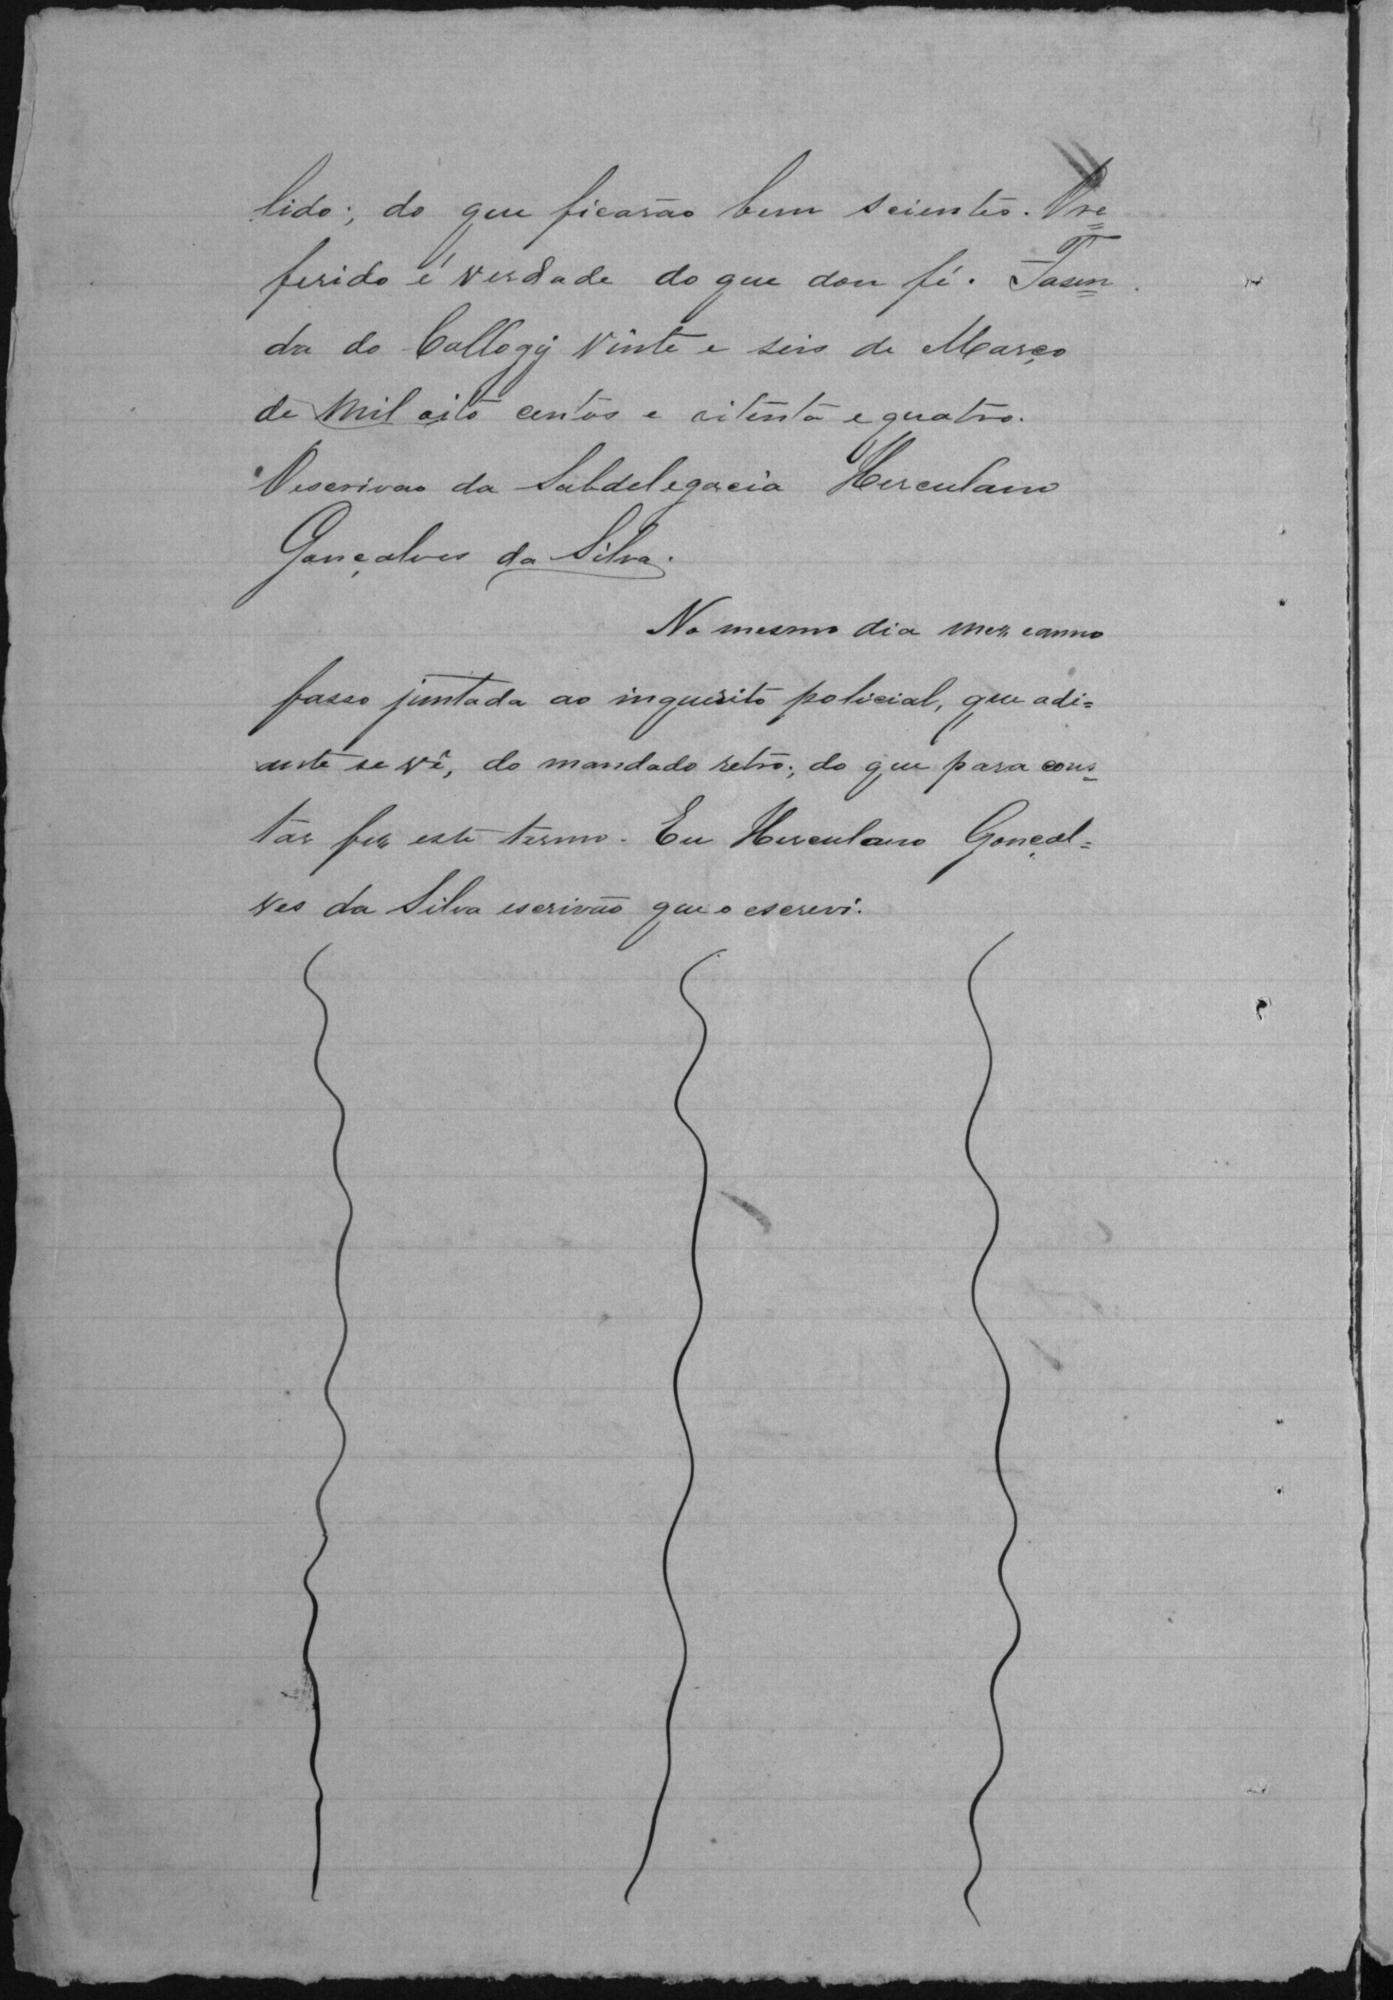 lido; do que ficarão bem scientes. Ore=
ferido é verdade do que dou fé. Fasen=
da do Callogy vinte e seis de Março
de mil oito centos e oitenta e quatro.
Oescrivao da Subdelegacia Herculano
Gonçalves da Silva.
No mesmo dia mez eanno
fasso juntada ao inquerito policial, que adi=
ante se vê, do mandado retro; do que para cons=
tar fiz este termo. Eu Herculano Gonçal=
ves da Silva escrivão que o escrevi.